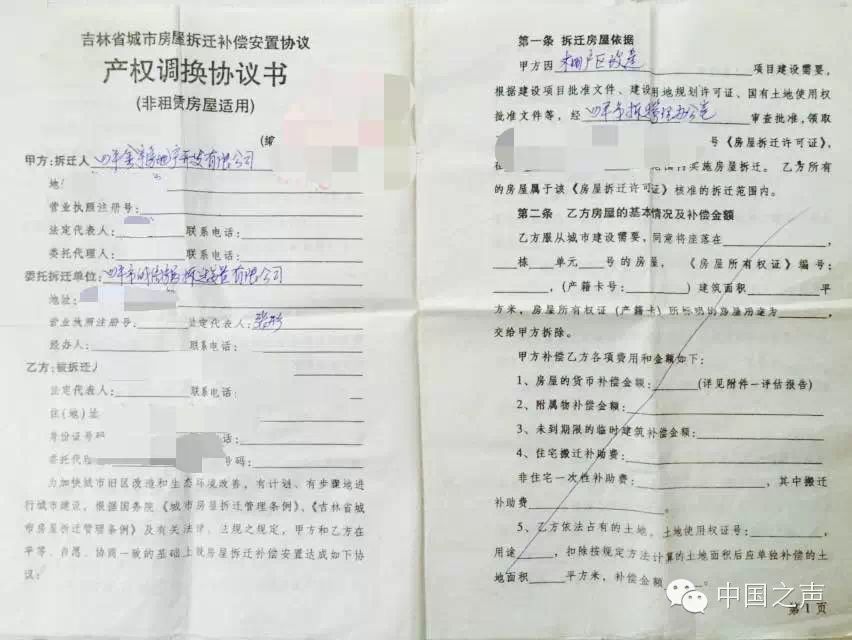 吉林省城市房屋拆迁补偿安置协议
产权调换协议书
(非租赁房屋适用)
甲方:拆迁人
地
营业执照注册号:
法定代表人: 联系电话:
委托代理人: 联系电话:
委托拆迁单位:
地址:
营业执照注册号: 法定代表人:
经办人: 联系电话:
乙方:被拆迁人
法定代表人: 联系电话:
住(地)址
身份证号码
委托代 号码:
为加快城市旧区改造和生态环境改善,有计划、有步骤地进
行城市建设,根据国务院《城市房屋拆迁管理条例》、《吉林省城
市房屋拆迁管理条例》及有关法律、法规之规定,甲方和乙方在
平等、自愿、协商一致的基础上就房屋拆迁补偿安置达成如下协
议:
第一条 拆迁房屋依据
甲方因 棚户区改造 项目建设需要,
根据建设项目批准文件、建设用地规划许可证、国有土地使用权
批准文件等,经 四平市拆迁管理办公室 审查批准,领取
号《房屋拆迁许可证》,
在 实施房屋拆迁。乙方所有
的房屋属于该《房屋拆迁许可证》核准的拆迁范围内。
第二条 乙方房屋的基本情况及补偿金额
乙方服从城市建设需要,同意将座落在 ,
栋 单元 号的房屋,《房屋所有权证》编号:
,(产籍卡号: )建筑面积 平
方米,房屋所有权证(产籍卡)所标明的房屋用途为 ,
交给甲方拆除。
甲方补偿乙方各项费用和金额如下:
1、房屋的货币补偿金额: (详见附件一评估报告)
2、附属物补偿金额:
3、未到期限的临时建筑补偿金额:
4、住宅搬迁补助费:
非住宅一次性补助费: ,其中搬迁
补助费 。
5、乙方依法占有的土地,土地使用权证号: ,
用途 ,扣除按规定方法计算的土地面积后应单独补偿的土
地面积 平方米,补偿金额 。
第1页
中国之声